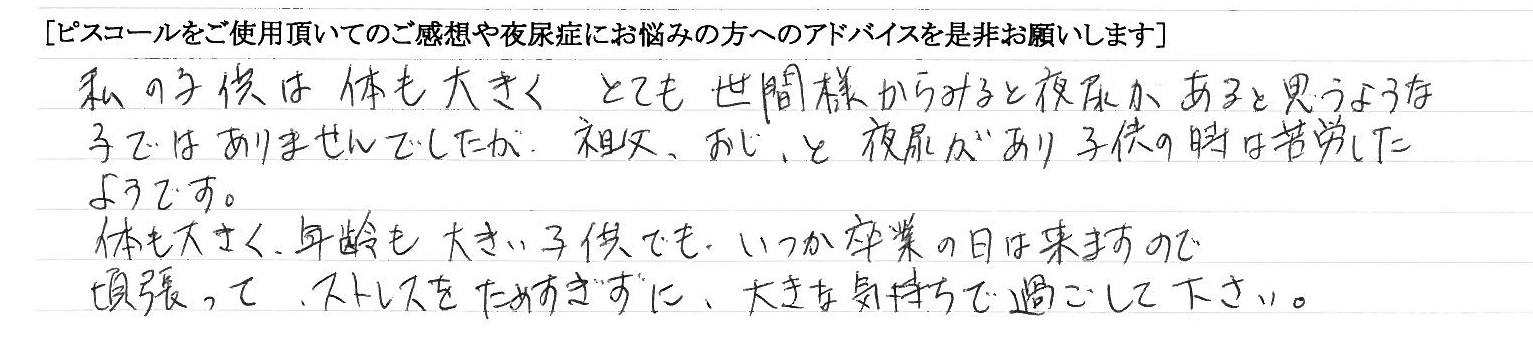 [ピスコールをご使用頂いてのご感想や夜尿症にお悩みの方へのアドバイスを是非お願いします]
私の子供は体も大きく とても世間様からみると夜尿が あると思うような
子ではありませんでしたが、祖父、おじ、と夜尿があり子供の時は苦労した
ようです。
体も大きく、年齢も大きい子供でも、いつか卒業の日は来ますので
頑張って、ストレスをためすぎずに、大きな気持ちで過ごして下さい。